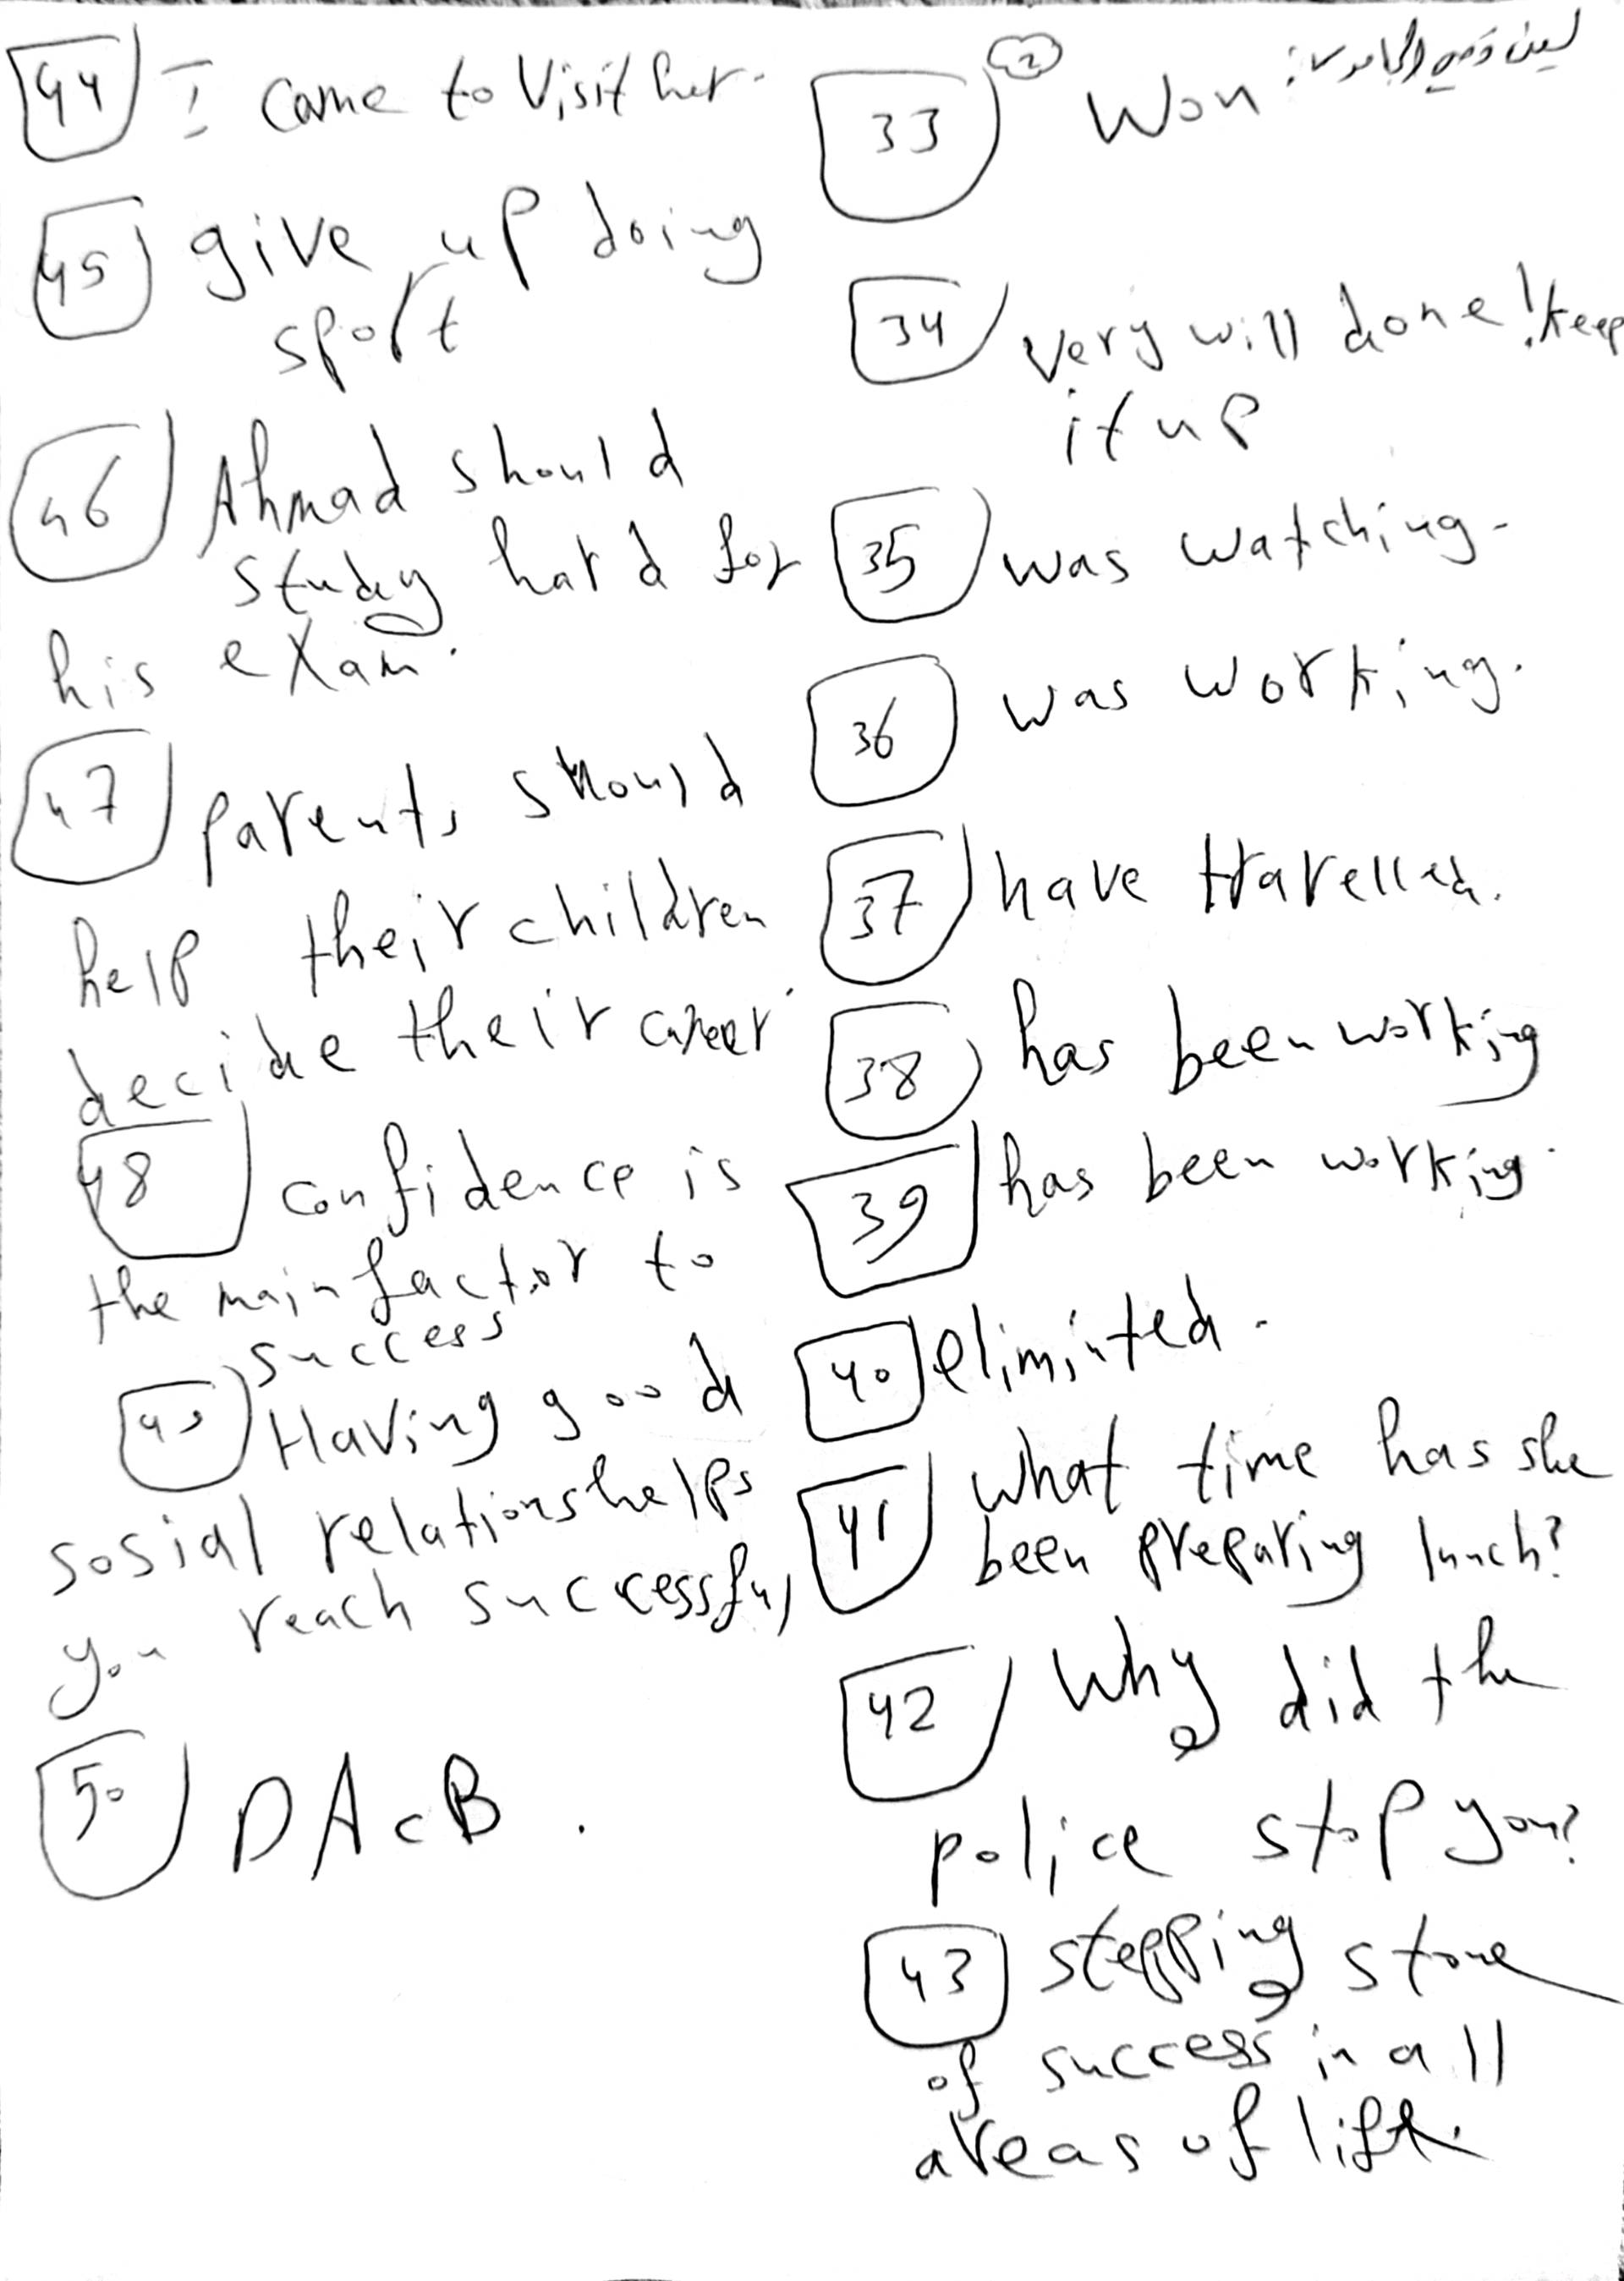 2
33 Won:
34 very will done! keep
it up
35 was watching-
36 was working.
37 have travelled.
38 has been working
39 has been working.
40 eliminted.
41 What time has she
been preparing lunch?
42 Why did the
police stop you?
43 stepping stone
of success in all
areas of life.
44 I came to visit her.
45 give up doing
sport
46 Ahmad should
study hard for
his exam.
47 parents should
help their children
decide their career
48 confidence is
the main factor to
success
49 Having good
sosial relations helps
you reach successful
50 DAcB.